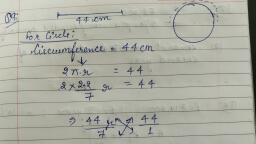 Q4:
44 cm
For Circle:
Circumference = 44 cm
2π.r = 44
2 × 22/7 r = 44
⇒ 44 r/7 = 44/1